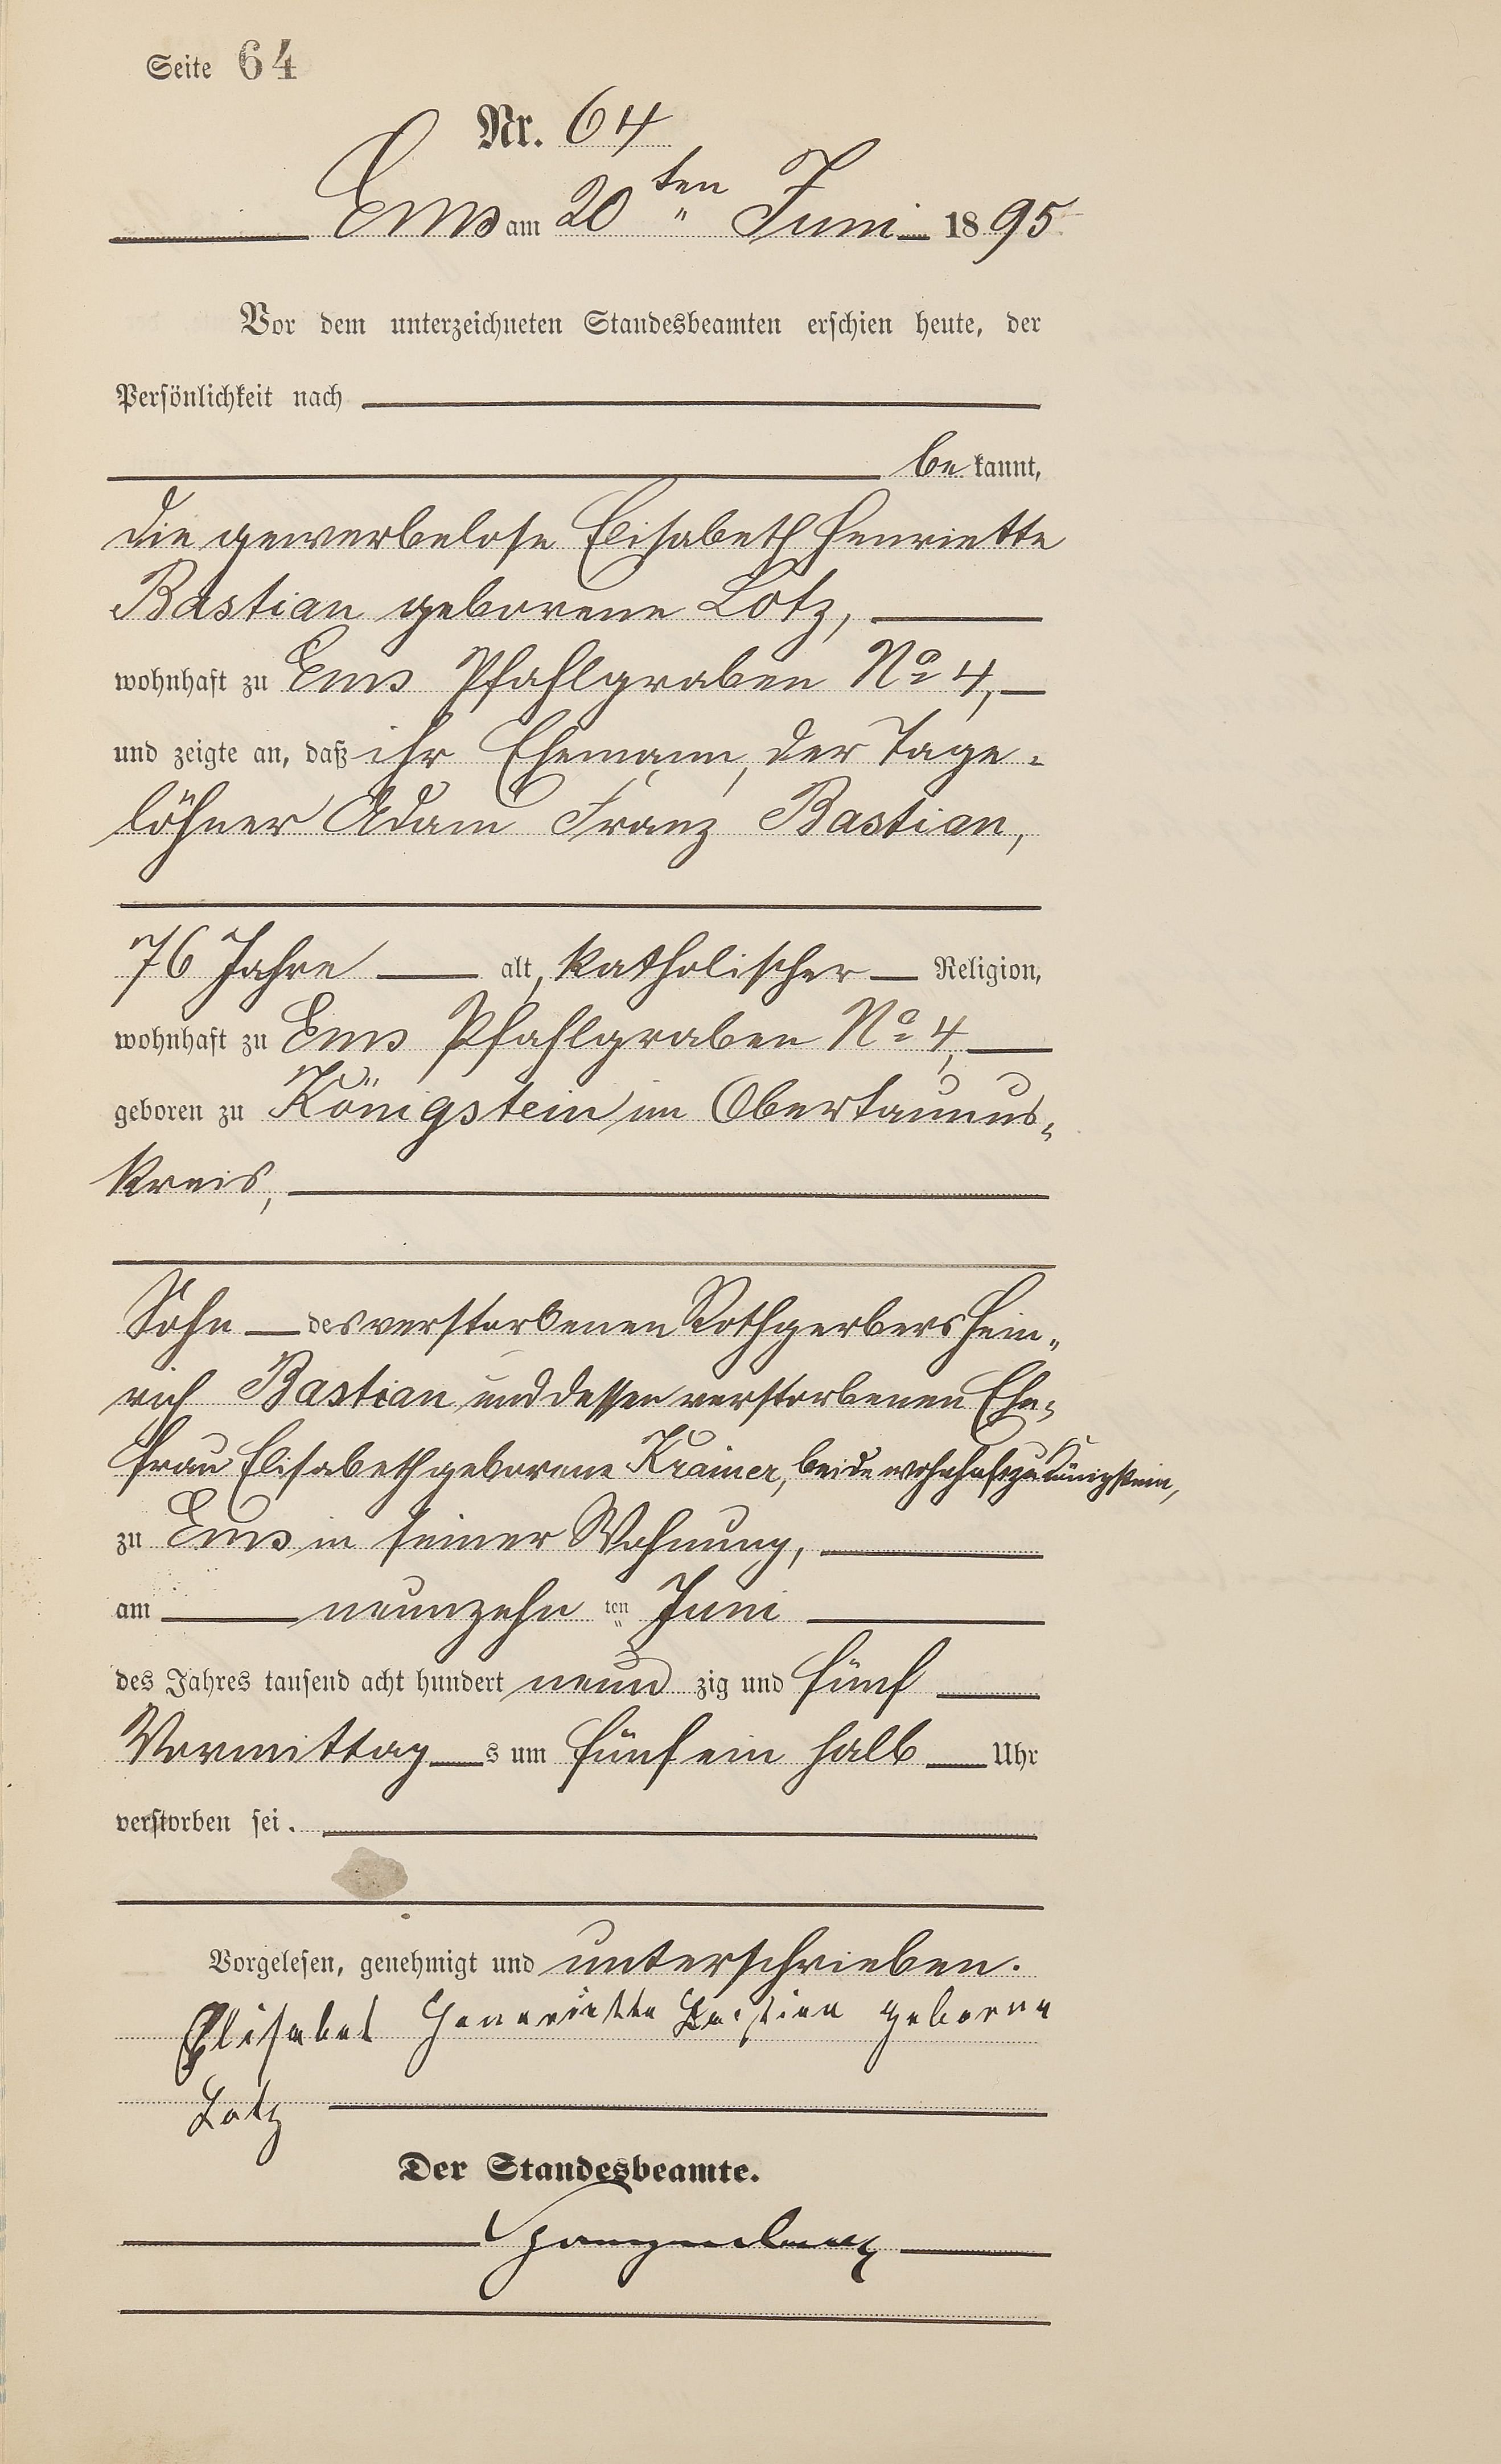 Seite 64
Nr. 64
Ems am 20 ten " Juni 1895
Vor dem unterzeichneten Standesbeamten erschien heute, der
Persönlichkeit nach
be kannt,
die gewerbelose Elisabeth Henriette
Bastian geborene Lotz,
wohnhaft zu Ems Pfahlgraben No 4,
und zeigte an, daß ihr Ehemann, der Tage-
löhner Adam Franz Bastian,
76 Jahre alt, katholischer Religion,
wohnhaft zu Ems Pfahlgraben No 4,
geboren zu Königstein im Obertaunus-
kreis,
Sohn des verstorbenen Rothgerbers Hein-
rich Bastian und dessen verstorbenen Ehe-
frau Elisabeth geborene Krämer, beide wohnhaft zu Königstein,
zu Ems in seiner Wohnung,
am neunzehn ten Juni
des Jahres tausend acht hundert neun zig und fünf
Vormittag s um fünf ein halb Uhr
verstorben sei.
Vorgelesen, genehmigt und unterschrieben.
Elisabet Henariette Bastian geborne
Lotz
Der Standesbeamte.